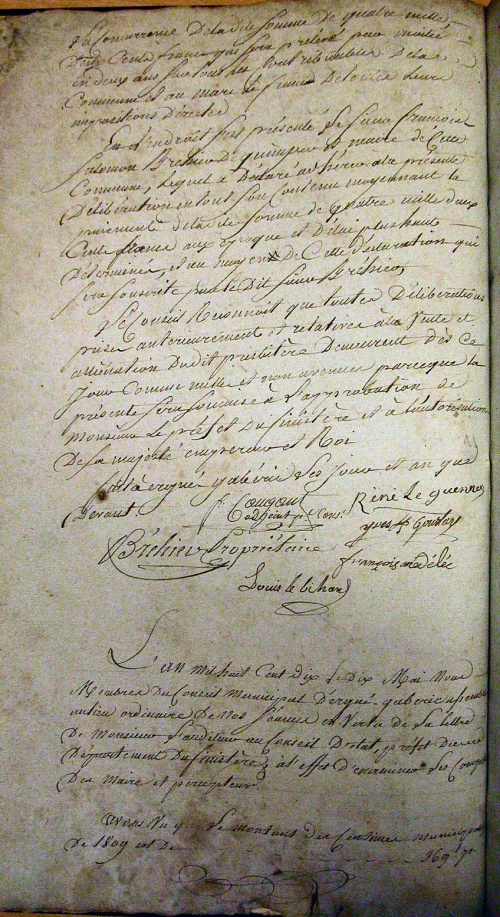 la somme de quatre mille
deux Cents francs qui sera
en deux ans sur tous les Contribuables de la
Commune et au marc le franc de leurs
impositions Directes
En l'endroit s'est présenté le Sieur françois
Salomon Bréhier De quimper et maire de Cette
Commune, lequel a Déclaré adhérer a la présente
Délibération en tout Son Contenu moyennant le
paiement de la de Somme de quatre mille deux
Cents francs aux Epoques et Délai plus haut
Déterminés, et au moyen de Cette Déclaration qui
sera souscrite par le Dit Sieur Bréhier,
Le Conseil Reconnoit que toutes Délibérations
prises antérieurement et relatives à la Vente et
aliénation Dudit presbitère Demeurent dès Ce
Jour Comme nulles et non avenues parceque la
présente sera soumise à l'approbation de
Monsieur Le préfet Du finistère et à l'autorisation
De sa majesté empereur et Roi
fait a ergué gabéric Les Jour et an que
Devant
René Le Guennec
Bréhier Propriétaire
françois
Louis le bihan
L'an mil huit Cent dix le Dix Mai Nous
Membres Du Conseil municipal D'ergué-gaberic
au lieu ordinaire De nos Séances en Vertu de la lettre
De monsieur l'auditeur au Conseil D'état, préfet Du
Département Du finistère, à l'effet D'examiner les Comptes
Du maire et percepteur
Vu que le montant des Centimes municipaux
De 1809 est de 169 70